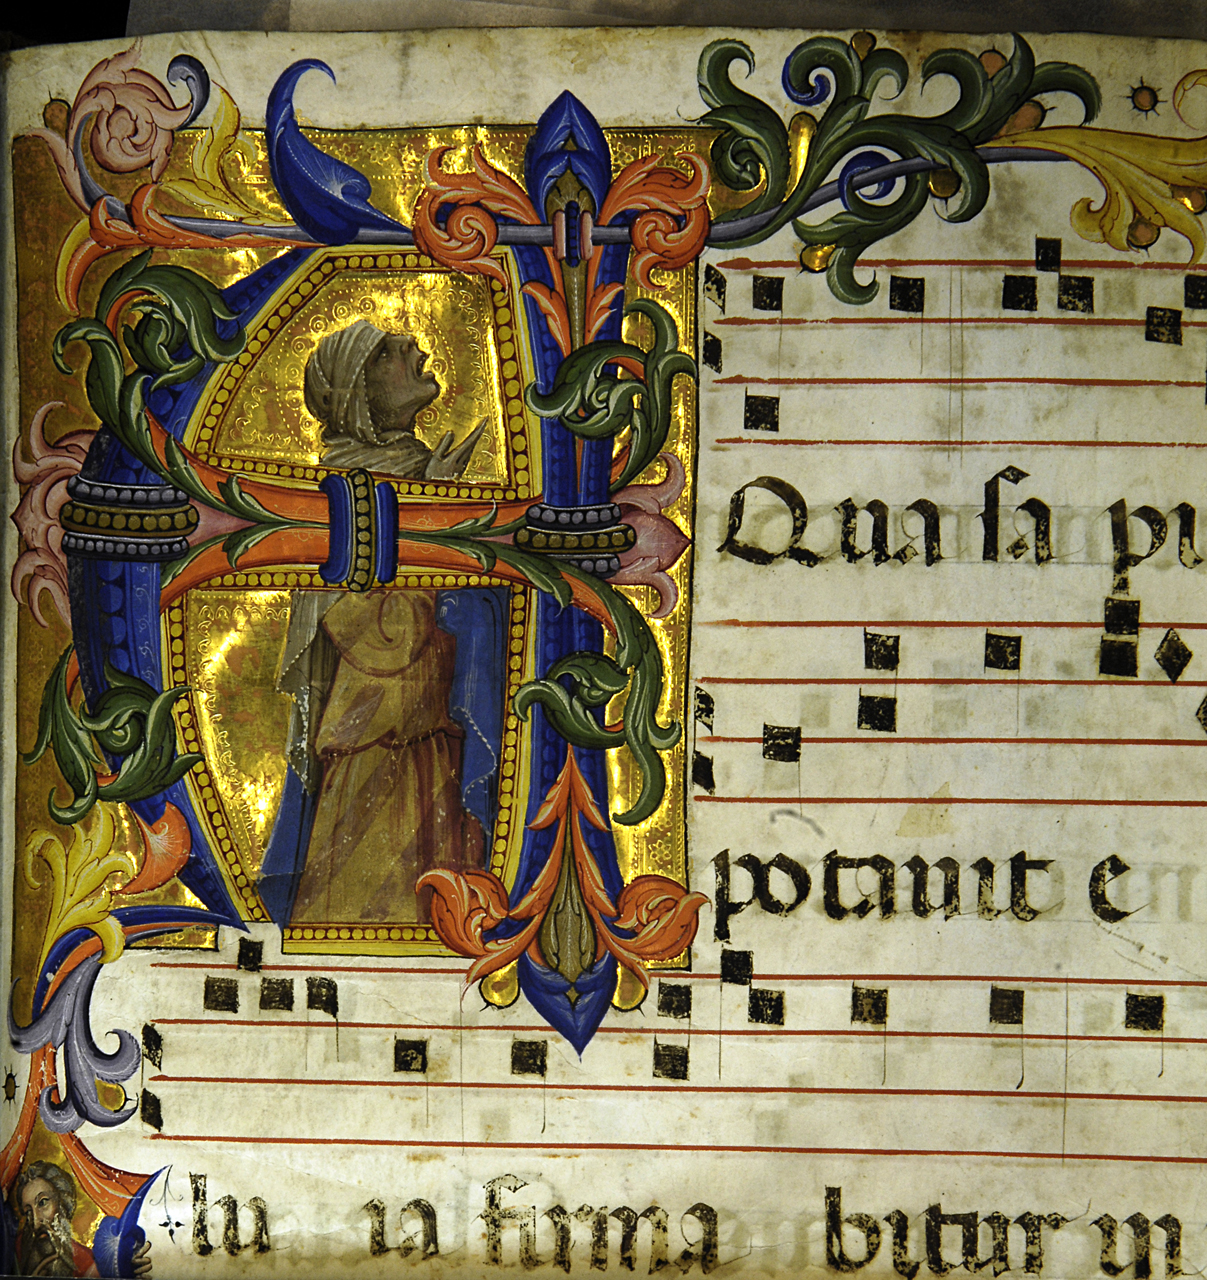 A Qua sa pi
potauit e
lu ia firma bitur in